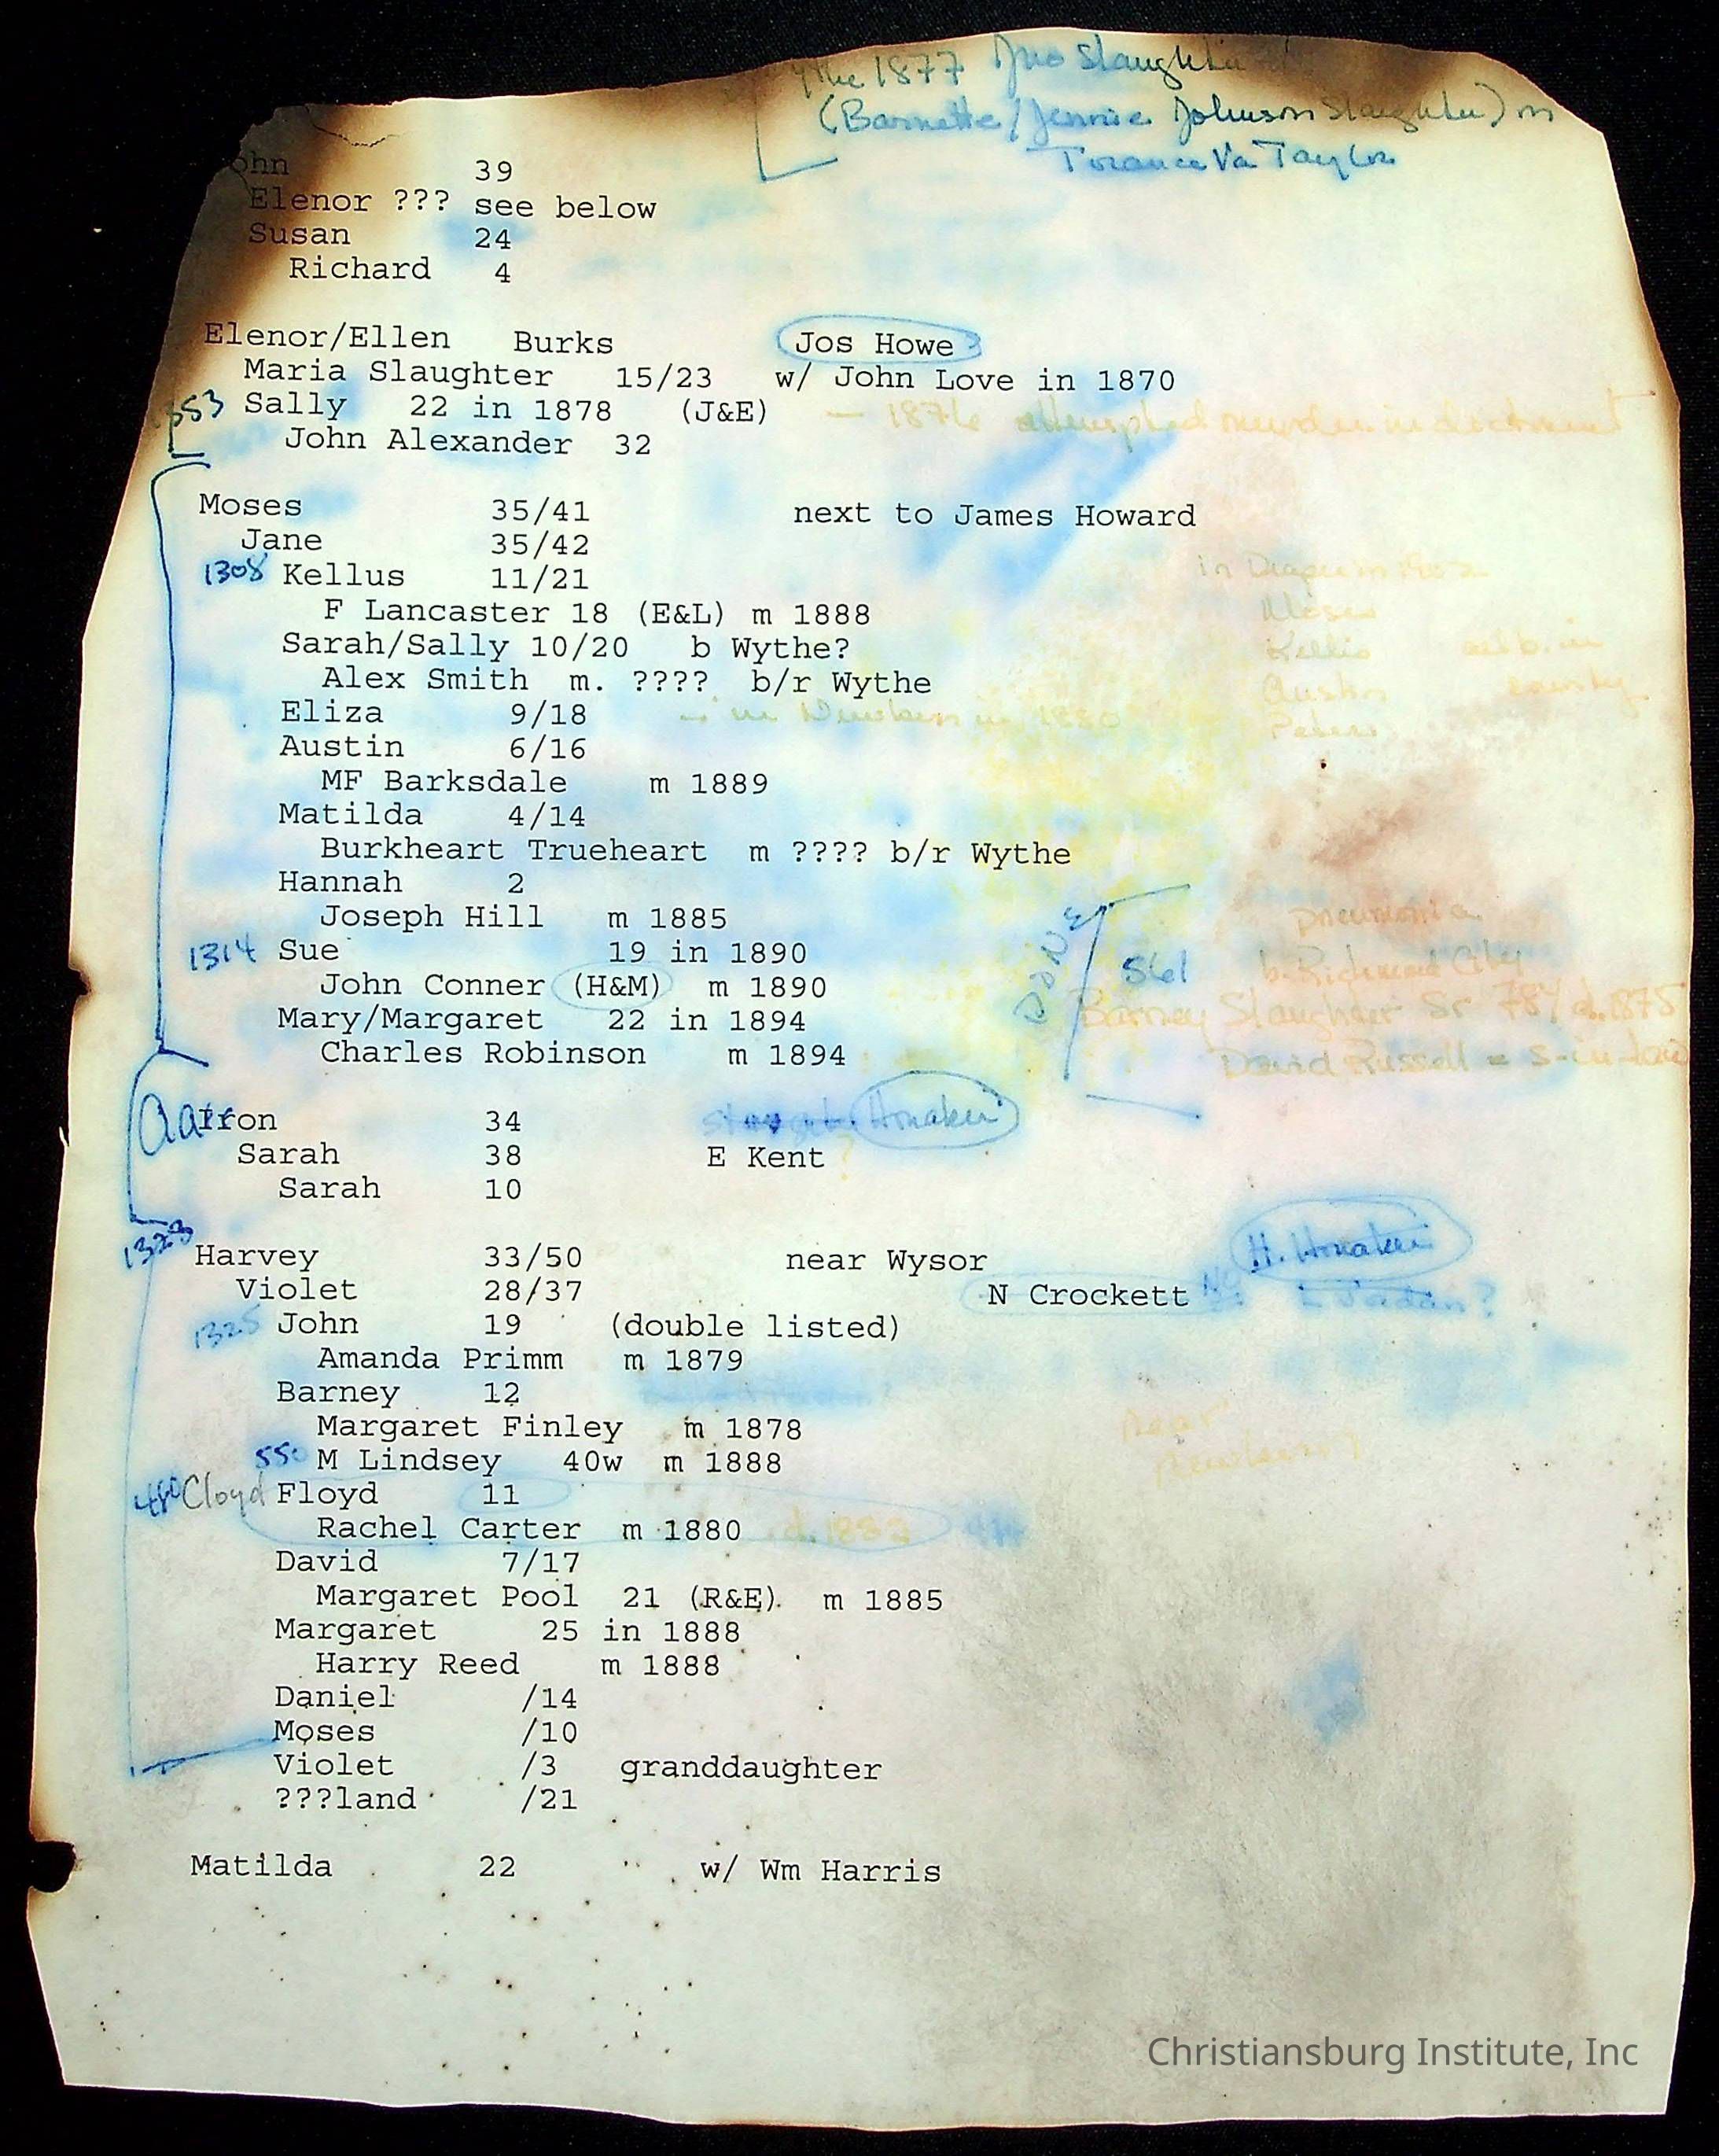 the 1877 Jno Slaughter
(Barnette/Jennie Johnson Slaughter) m
Va Taylor
ohn 39
Elenor ??? see below
Susan 24
Richard 4
Elenor/Ellen Burks Jos Howe ?
Maria Slaughter 15/23 w/ John Love in 1870
553 Sally 22 in 1878 (J&E) — 1876 attempted murder indictment
John Alexander 32
Moses 35/41 next to James Howard
Jane 35/42
1308 Kellus 11/21 in Draper in 1902
F Lancaster 18 (E&L) m 1888 Moses
Sarah/Sally 10/20 b Wythe? Kellis all b. in
Alex Smith m. ???? b/r Wythe Austin county
Eliza 9/18 in Newbern in 1880 Peter
Austin 6/16
MF Barksdale m 1889
Matilda 4/14
Burkheart Trueheart m ???? b/r Wythe
Hannah 2
Joseph Hill m 1885 DONE pneumonia
1314 Sue 19 in 1890 561 b. Richmond City
John Conner (H&M) m 1890 Barney Slaughter Sr 78y d. 1875
Mary/Margaret 22 in 1894 David Russell = s-in-law
Charles Robinson m 1894
Aaron 34 Honaker
Sarah 38 E Kent ?
Sarah 10
1323 Harvey 33/50 near Wysor H. Honaker
Violet 28/37 N Crockett NO L Jordan?
1325 John 19 (double listed)
Amanda Primm m 1879
Barney 12
Margaret Finley m 1878 near
550 M Lindsey 40w m 1888 Newbern?
480 Cloyd Floyd 11
Rachel Carter m 1880 d. 1882
David 7/17
Margaret Pool 21 (R&E) m 1885
Margaret 25 in 1888
Harry Reed m 1888
Daniel /14
Moses /10
Violet /3 granddaughter
???land /21
Matilda 22 w/ Wm Harris
Christiansburg Institute, Inc